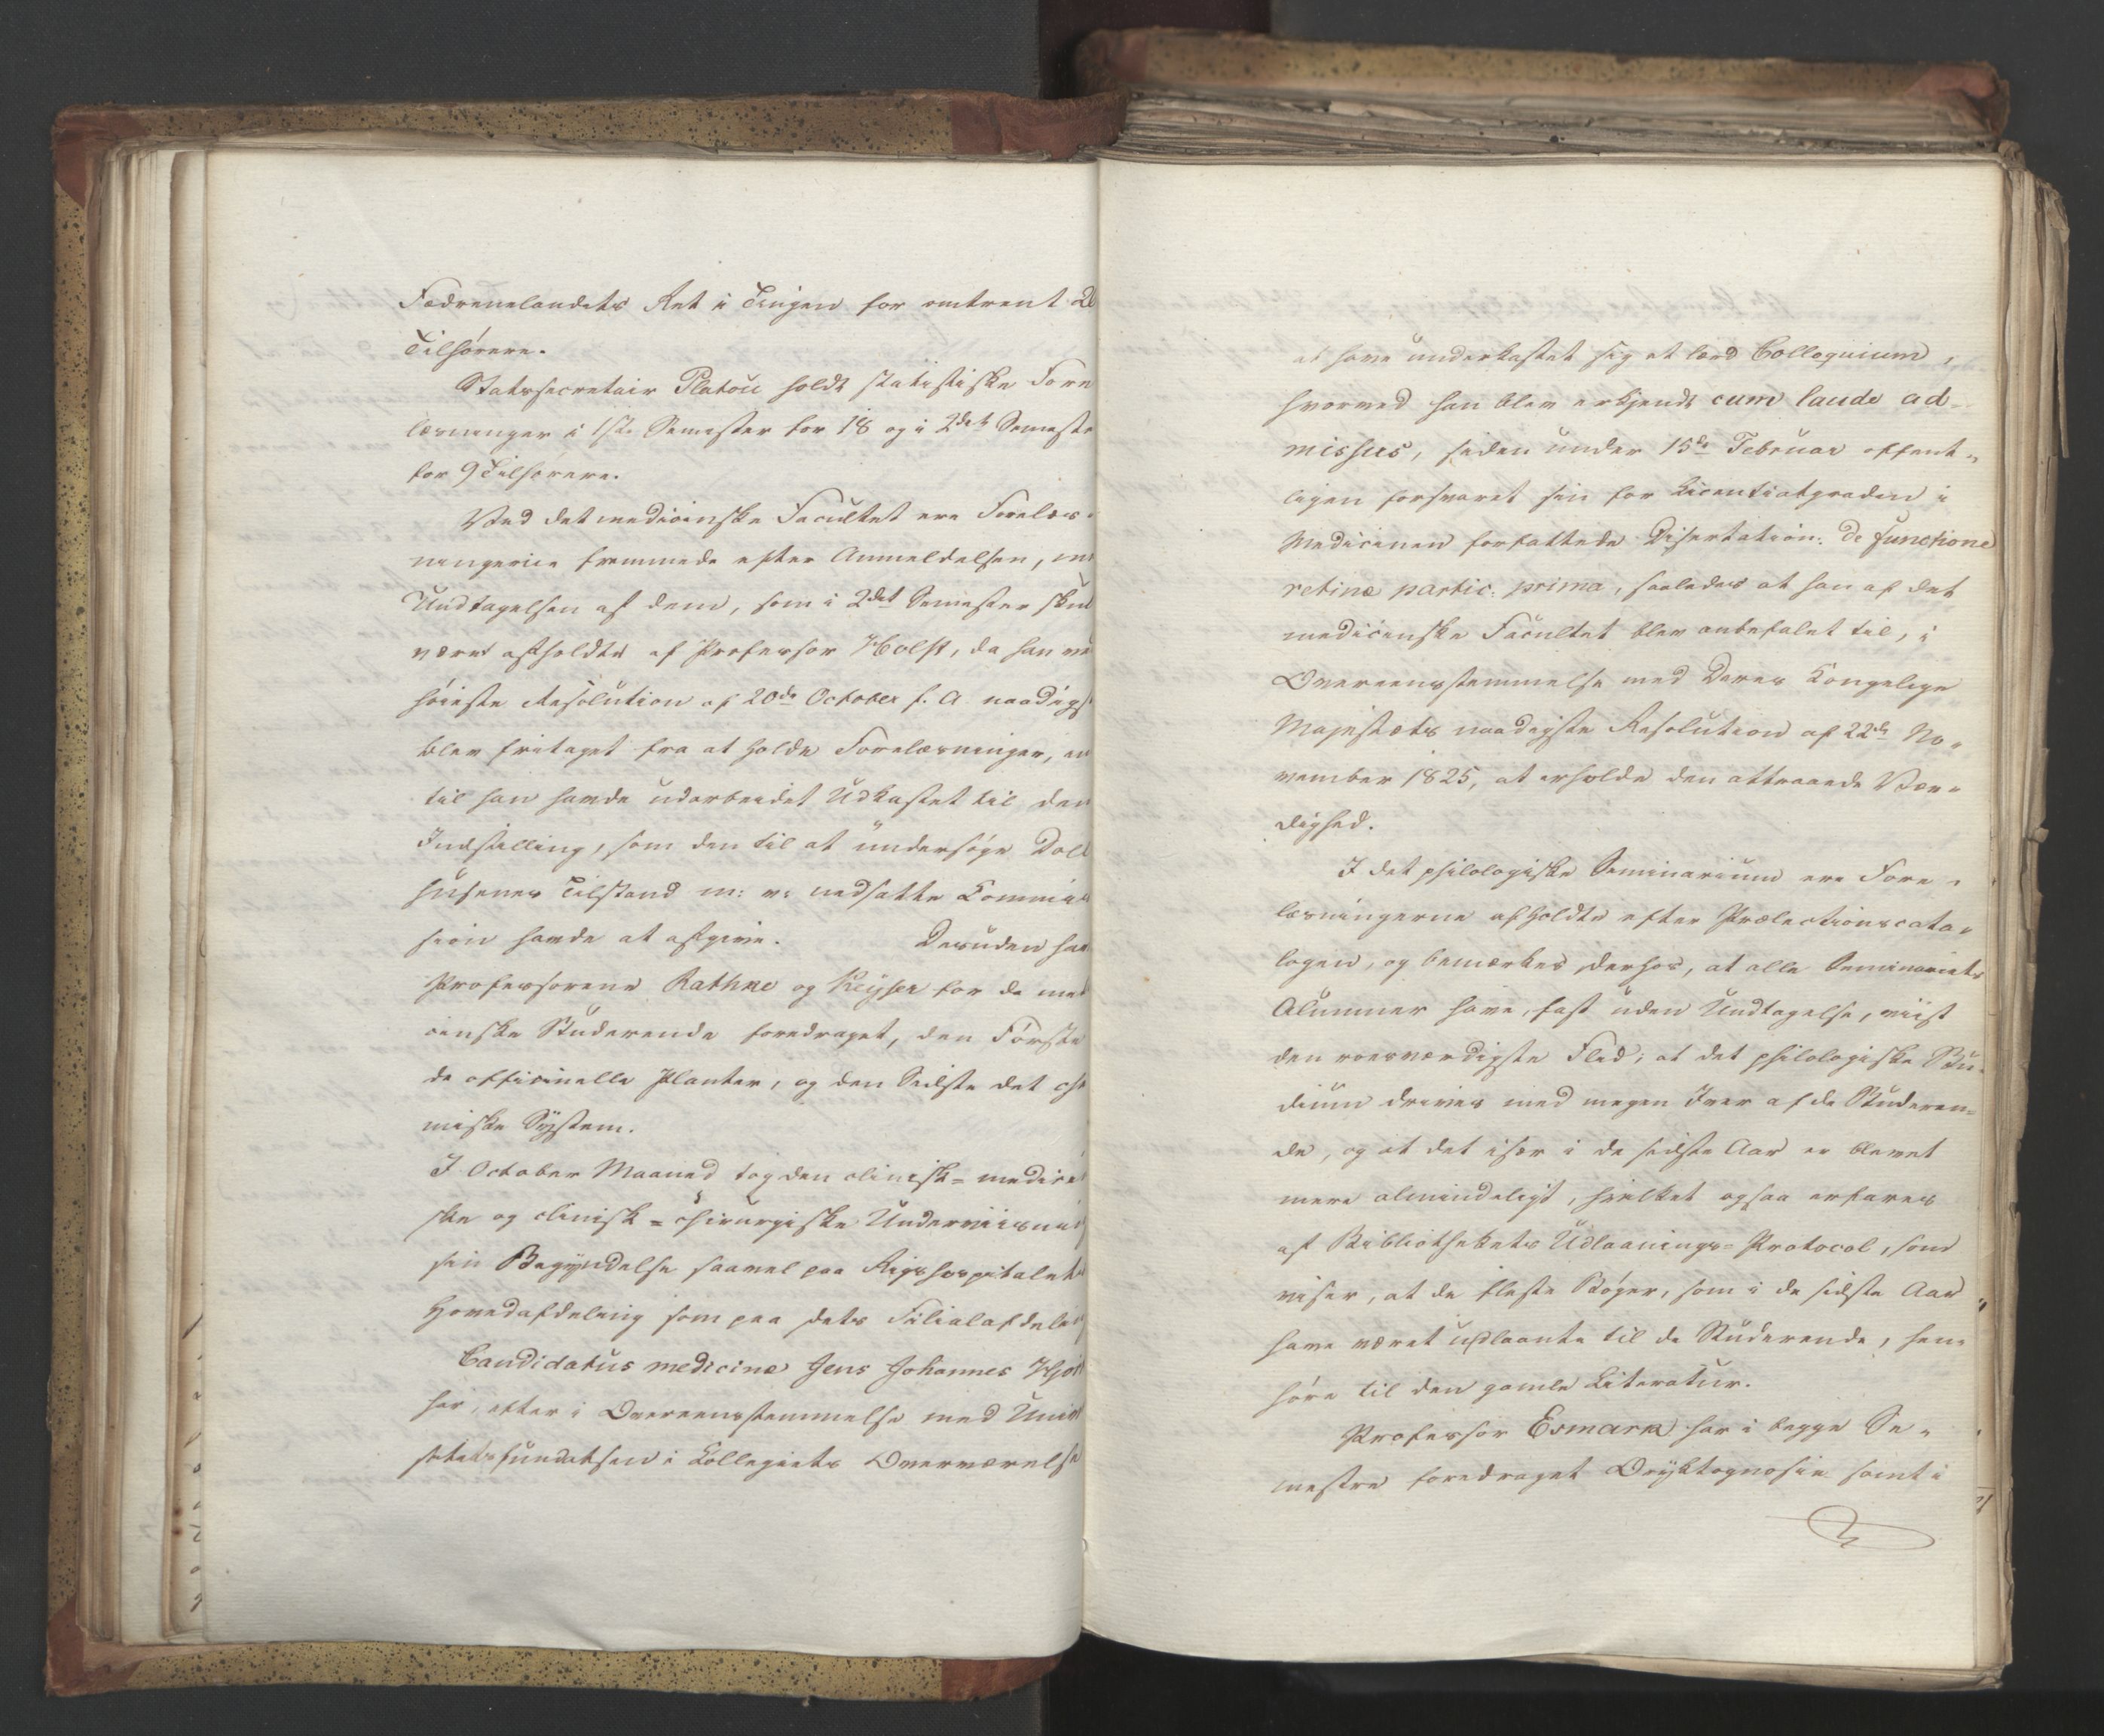 Fædrenelandets Ret i Tingen for omtrent 20
Tilhörere.
Statssecretair Platou holdt statistiske Fore
læsninger i 1ste Semester for 18 og i 2det Semeste
for 9 Tilhörere.
Ved det medicinske Facultet ere Forelæs-
ningerne fremmede efter Anmeldelsen, me
Undtagelsen af dem, som i 2det Semester skul
været afholdte af Professor Holst, da han ve
høieste Resolution af 20de October f. A. naadigs
blev fritaget fra at holde Forelæsninger, in
til han havde udarbeidet Udkastet til den
Indstilling, som den til at undersöge Doll
husenes Tilstand m: v: nedsatte Commis
sion havde at afgive. Desuden har
Professorene Rathke og Keyser for de med
cinske Studerende foredraget, den Förste
de officinelle Planter, og den Sidste det che
miske System.
I October Maaned tog den clinisk=medici
ske og clinisk=chirurgiske Underviisning
sin Begyndelse saavel paa Rigshospitalets
Hovedafdeling som paa dets Filialafdeling
Candidatus medicinæ Jens Johannes Hjort
har, efter i Overeensstemmelse med Univer
sitetsfundatsen i Collegiets Overværelse
at have underkastet sig et lærd Colloquium,
hvorved han blev erkjendt cum laude ad-
missus, siden under 15de Februar offent-
ligen forsvaret sin for Licentiatgraden i
Medicinen forfattede Disertation: de functione
retinæ partic: prima, saaledes at han af det
medicinske Facultet blev anbefalet til, i
Overeensstemmelse med Deres Kongelige
Majestæts naadigste Resolution af 22de No-
vember 1825, at erholde den attraaede Vær-
dighed.
I det philologiske Seminarium ere Fore-
læsningerne afholdte efter Prælectionscata-
logen, og bemærkes derhos, at alle Seminariets
Alumner have, fast uden Undtagelse, viist
den roesværdigste Flid; at det philologiske Stu-
dium drives med megen Iver af de Studeren-
de, og at det især i de sidste Aar er blevet
mere almindeligt, hvilket ogsaa erfares
af Bibliothekets Udlaanings=Protocol, som
viser, at de fleste Böger, som i de sidste Aar
have været udlaante til de Studerende, hen-
höre til den gamle Literatur.
Professor Esmark har i begge Se-
mestre foredraget Oryktognosie samt i